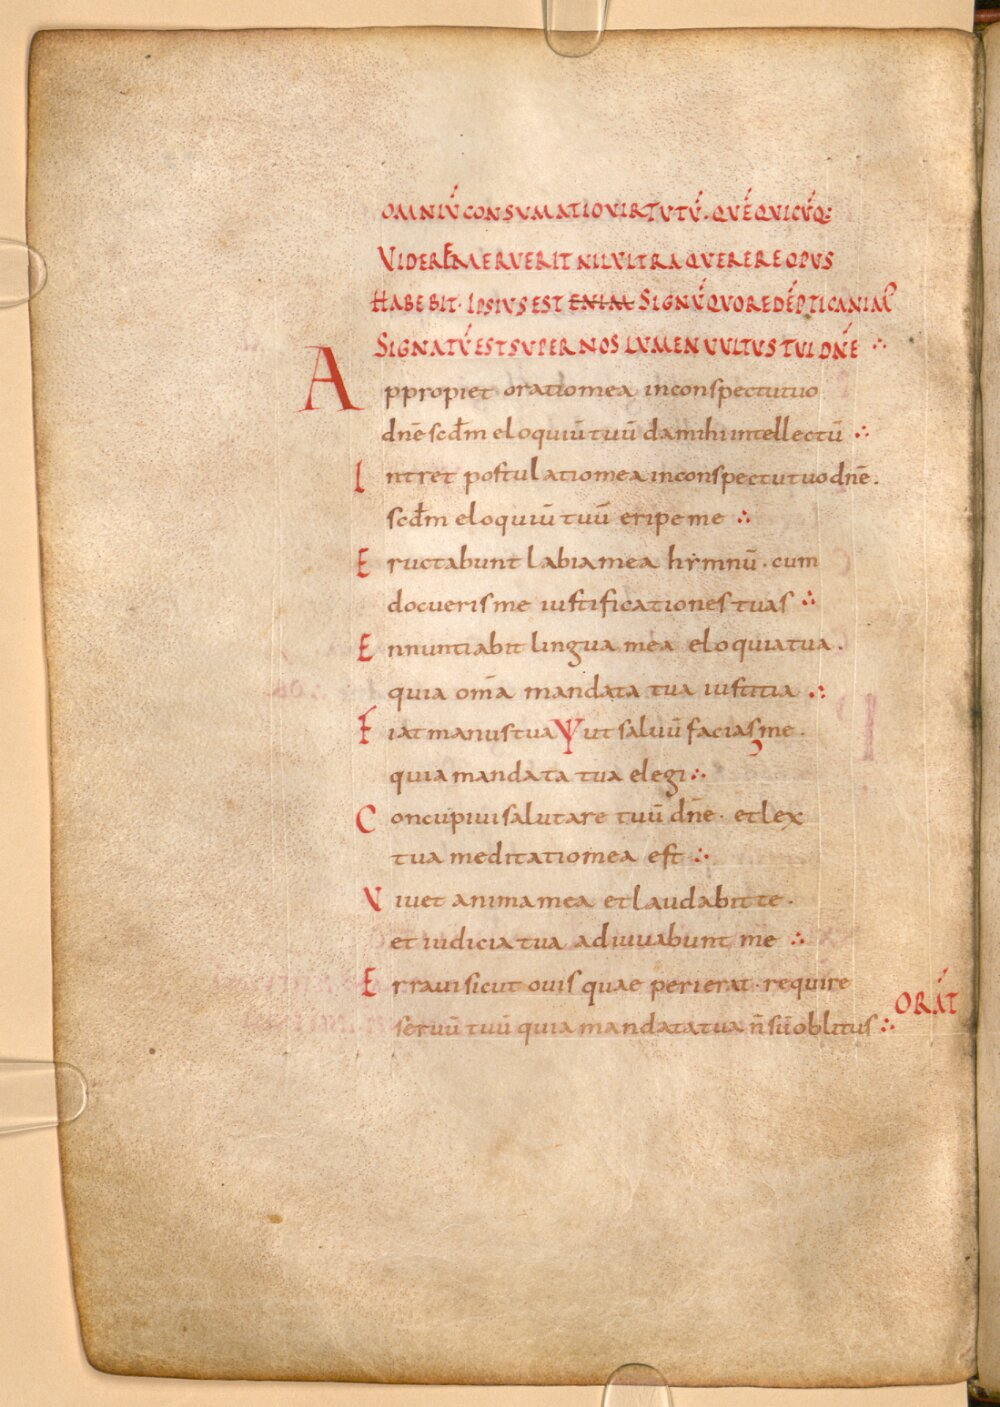 OMNIŪ CONSVMATIO VIRTVTŪ. QVĒ QVICŪQ:
VIDERE MERVERIT NIL VLTRA QVERERE OPVS
HABEBIT. IPSIVS EST ENIM SIGNŪ QVO REDĒPTI CANIM̄
SIGNATŪ EST SVPER NOS LVMEN VVLTVS TVI DN̄E ∴
Appropiet oratio mea in conspectu tuo
dn̄e scd̄m eloquiū tuū da mihi intellectū ∴
Intret postulatio mea in conspectu tuo dn̄e.
scd̄m eloquiū tuū eripe me ∴
Eructabunt labia mea hẏmnū. cum
docueris me iustificationes tuas ∴
Ennuntiabit lingua mea eloquia tua.
quia om̄a mandata tua iustitia ∴
Fiat manus tua ut saluū facias me.
quia mandata tua elegi ∴
Concupiui salutare tuū dn̄e. et lex
tua meditatio mea est ∴
Viuet anima mea et laudabit te.
et iudicia tua adiuuabunt me ∴
Erraui sicut ouis quae perierat. require
seruū tuū quia mandata tua n̄ sū oblitus ∴ ORAT̄